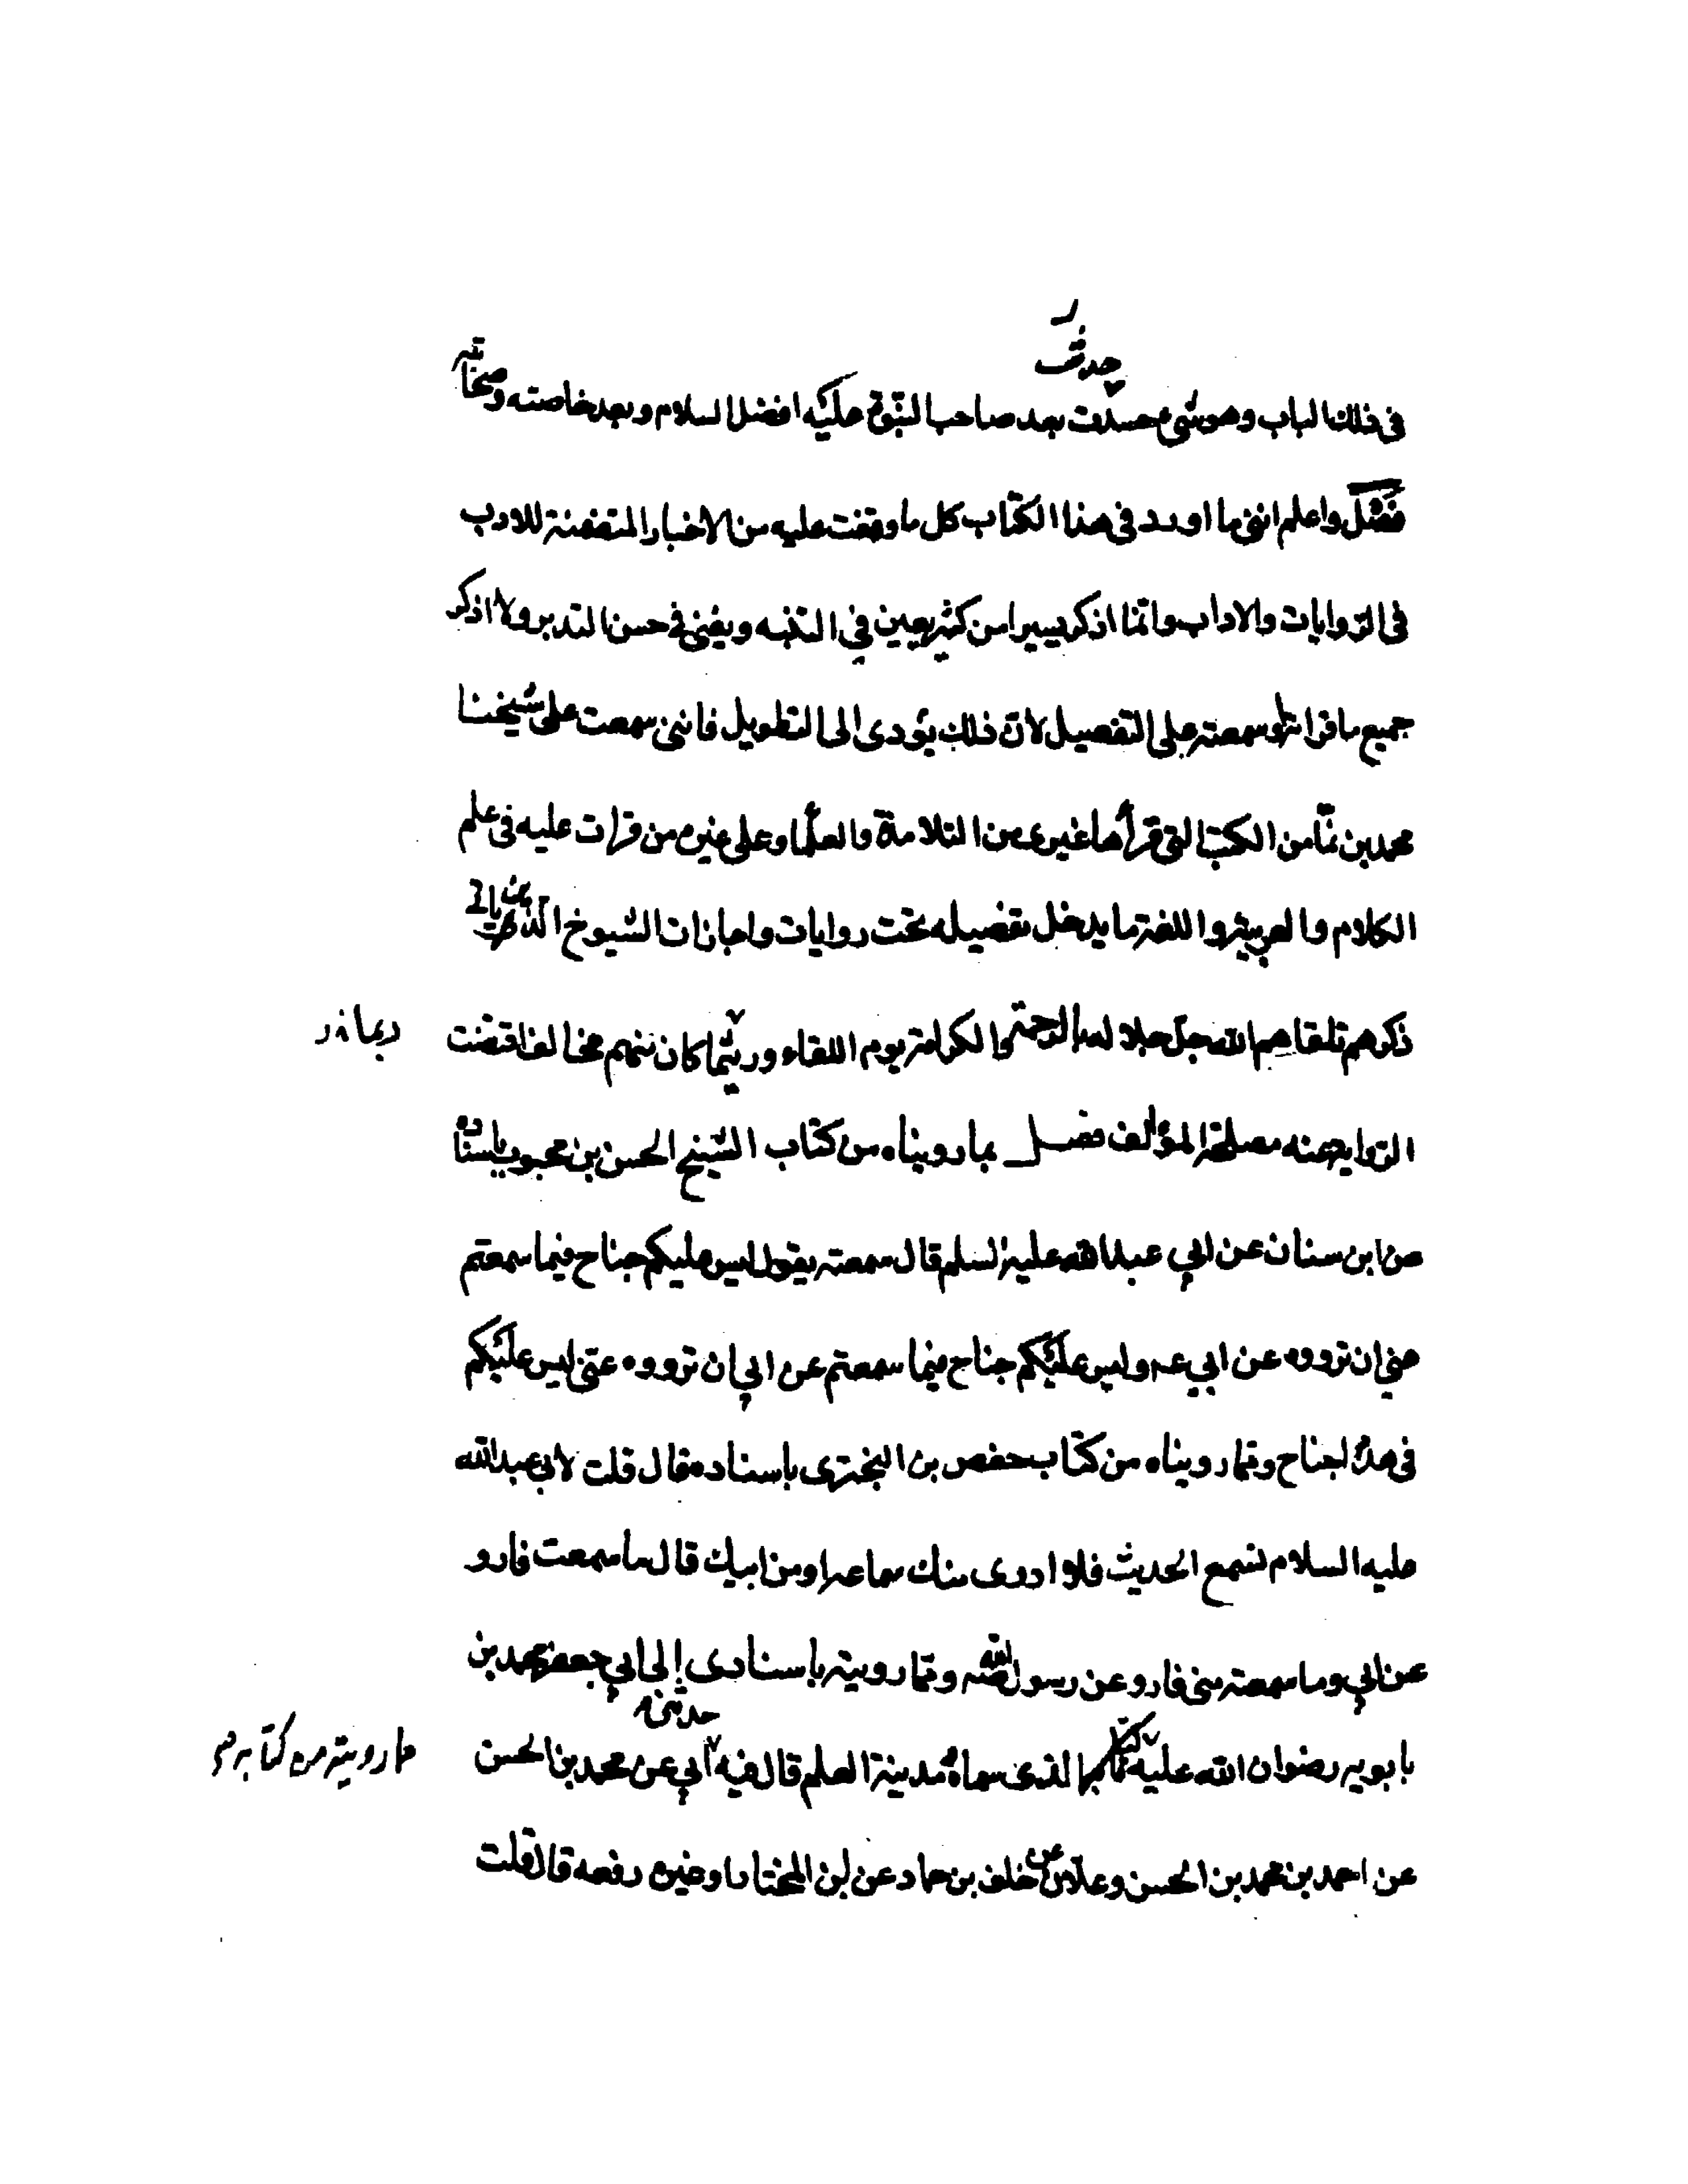 حدثت
في ذلك الباب وهو شيء حسدت بعد صاحب النبوة عليه افضل السلام وبعد خاصته وصحابته
فصل واعلم انني ما اورد في هذا الكتاب كل ما وقفت عليه من الاخبار المتضمنة للادب
في الروايات والاداب وانما اذكر يسيرا من كثير يعين في التنبه ويغني في حسن التدبر ولا اذكر
جميع ما قراته او سمعته على التفصيل لان ذلك يؤدى الى التطويل فانني سمعت على شيخنا
محمد بن نما من الكتب التي قرأها غيرى من التلامذة والعلما وعلى غيره من قرات عليه في علم
الكلام والعربية واللغة ما يدخل تفصيله تحت روايات واجازات الشيوخ الذين
ذكرهم تلقاهم الله جل جلاله بالرحمة والكرامة يوم اللقاء وربما كان منهم مخالف اقتضت
الرواية عنه مصلحة المؤالف فصل بما رويناه من كتاب الشيخ الحسن بن محبوب باسناده
عن ابن سنان عن ابي عبد الله عليه السلم قال سمعته يقول ليس عليكم جناح فيما سمعتم
مني ان ترووه عن ابي عه وليس عليكم جناح فيما سمعتم عن ابي ان ترووه عني ليس عليكم
في هذا جناح ومما رويناه من كتاب حفص بن البخترى باسناده قال قلت لابي عبد الله
عليه السلام نسمع الحديث فلا ادرى منك سماعه او من ابيك قال ما سمعت فارو
عن ابي وما سمعته مني فارو عن رسول الله ومما رويته باسنادى إلى ابي جعفر محمد بن
حدثني
بابويه رضوان الله عليه كتابه الذى سماه مدينة العلم قال فيه ابي عن محمد بن الحسن
مما رويته من كتابه
عن احمد بن محمد بن الحسن وعلان عن خلف بن حماد عن ابن المختار او غيره رفعه قال قلت